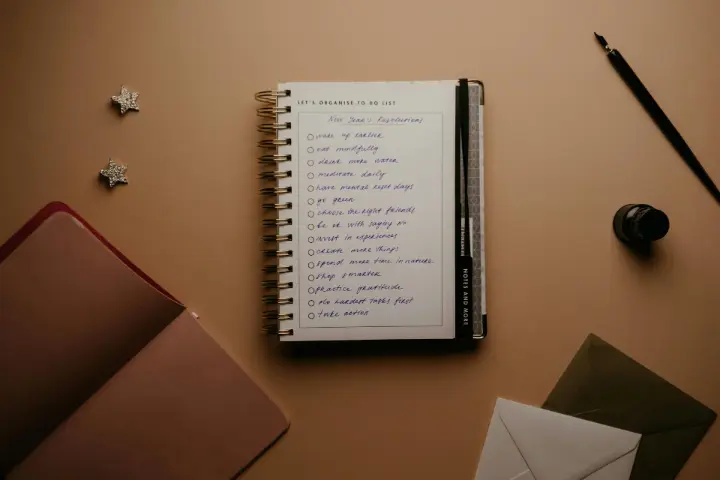 LET'S ORGANISE TO DO LIST
New Year's Resolutions
wake up earlier
eat mindfully
drink more water
meditate daily
have mental reset days
go green
choose the right friends
be ok with saying no
invest in experiences
create more things
spend more time in nature
shop smarter
practice gratitude
the hardest tasks first
take action
NOTES AND MORE